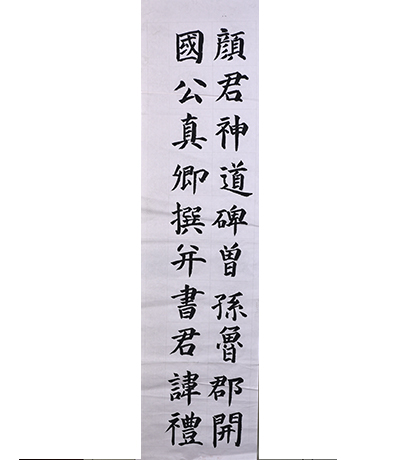 顔君神道碑曽孫魯郡開
國公真卿撰并書君諱禮